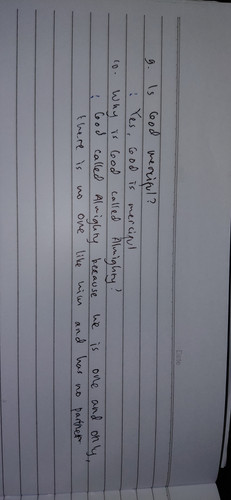 Date
9. Is God merciful?
: Yes, God is merciful
10. Why is God called Almighty?
: God called Almighty because he is one and only,
there is no one like him and has no partner